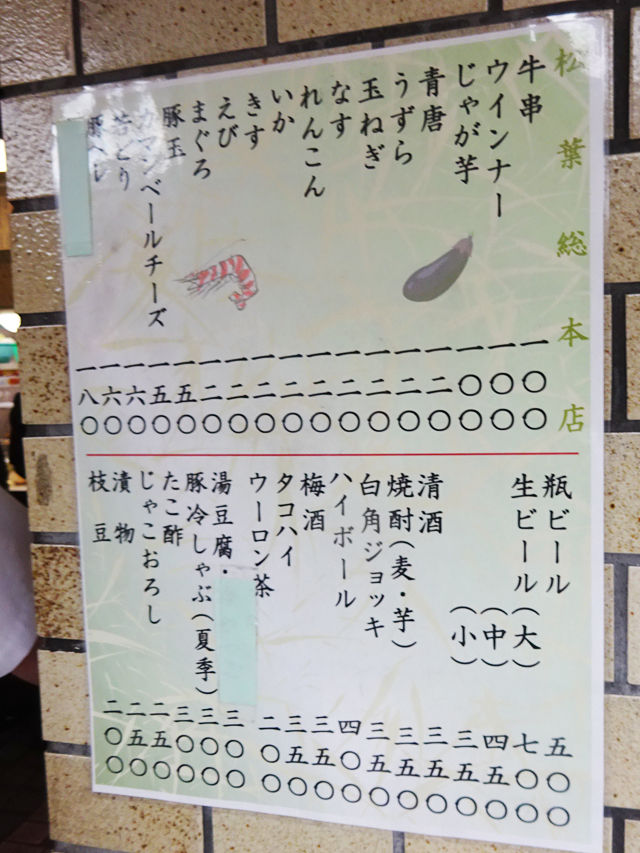 松葉総本店
牛串 一〇〇
ウインナー 一〇〇
じゃが芋 一〇〇
青唐 一二〇
うずら 一二〇
玉ねぎ 一二〇
なす 一二〇
れんこん 一二〇
いか 一二〇
きす 一二〇
えび 一二〇
まぐろ 一二〇
豚玉 一五〇
カマンベールチーズ 一五〇
若どり 一六〇
豚ヘレ 一六〇
一八〇
瓶ビール 五〇〇
生ビール(大) 七〇〇
(中) 四五〇
(小) 三五〇
清酒 三五〇
焼酎(麦・芋) 三五〇
白角ジョッキ 三五〇
ハイボール 四〇〇
梅酒 三五〇
タコハイ 三五〇
ウーロン茶 二〇〇
湯豆腐・ 三〇〇
豚冷しゃぶ(夏季) 三〇〇
たこ酢 三〇〇
じゃこおろし 二五〇
漬物 二五〇
枝豆 二〇〇